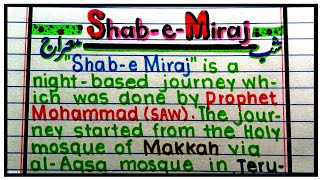 Shab-e-Miraj
معراج شب
"Shab-e Miraj" is a
night-based journey wh-
ich was done by Prophet
Mohammad (SAW). The jour-
ney started from the Holy
mosque of Makkah via
al-Aqsa mosque in Teru-